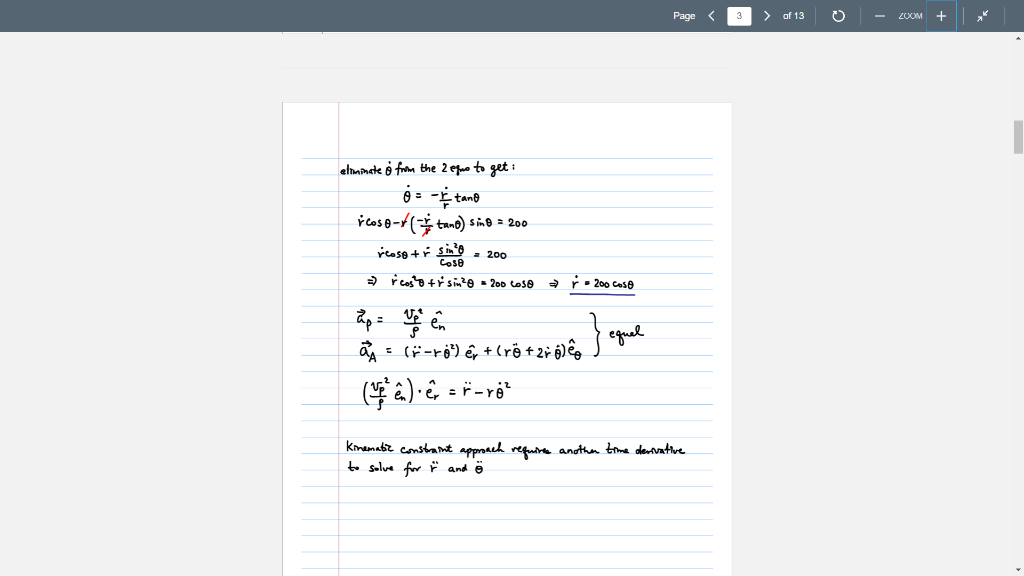 Page 3 of 13 ZOOM
eliminate θ̇ from the 2 eqns to get :
θ̇ = -ṙ/r tanθ
ṙcosθ - r(-ṙ/r tanθ) sinθ = 200
ṙcosθ + ṙ sin²θ/cosθ = 200
⇒ ṙcos²θ + ṙsin²θ = 200 cosθ ⇒ ṙ = 200 cosθ
a⃗p = Vp²/ρ ên
a⃗A = (r̈ - rθ̇²) êr + (rθ̈ + 2ṙθ̇) êθ } equal
(Vp²/ρ ên) · êr = r̈ - rθ̇²
Kinematic constraint approach requires another time derivative
to solve for r̈ and θ̈